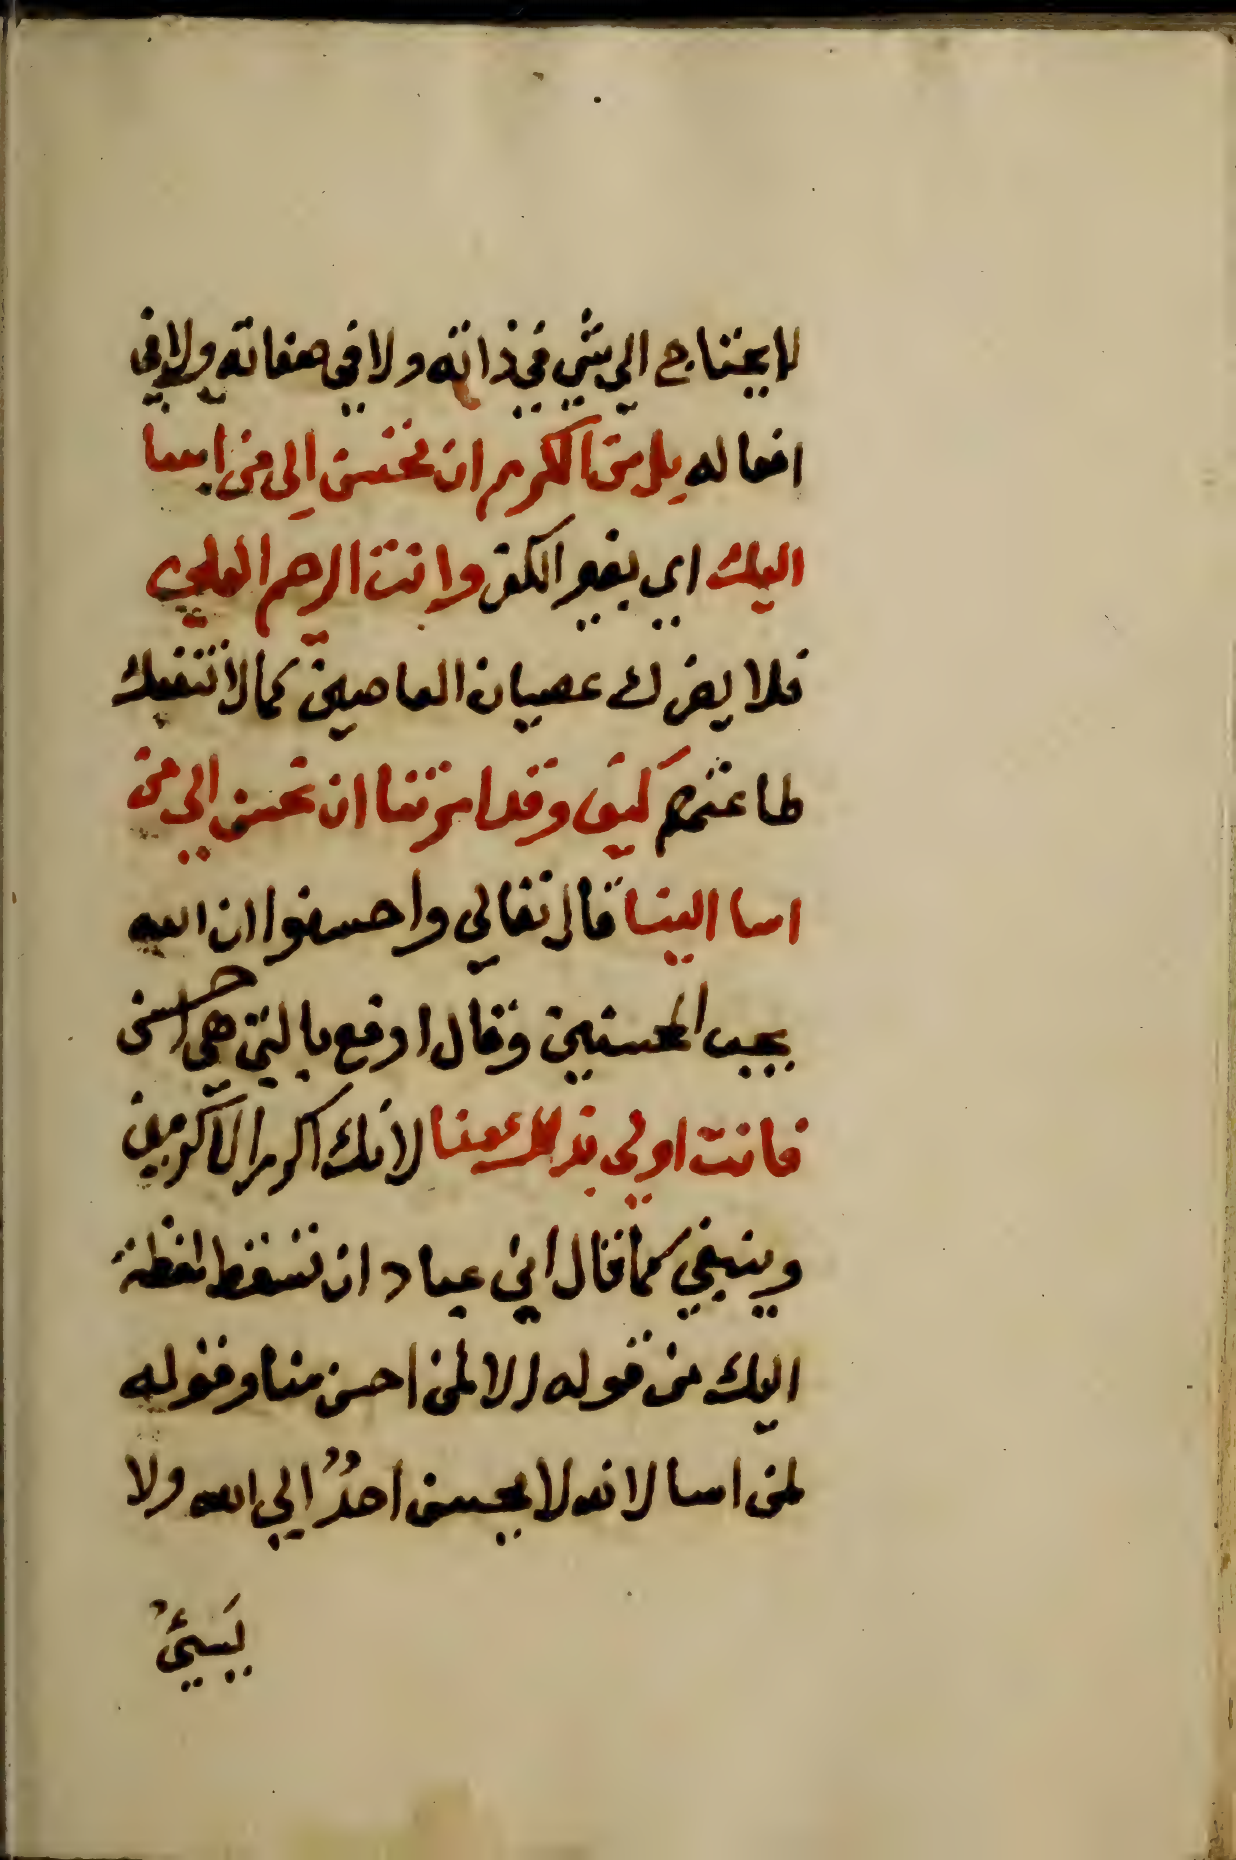 لا يحتاج الي شي في ذاته ولا في صفاته ولا في
افعاله بل من الكرم ان تحسن الي من اسا
اليك اي بغير الكفر وانت الرحيم العلي
فلا يضرك عصيان العاصين كما لا تنفعك
طاعتهم كيف وقد امرتنا ان نحسن الي من
اسا الينا قال تعالي واحسنوا ان الله
يحب المحسنين وقال ادفع بالتي هي احسن
فانت اولي بذلك منا لانك اكرم الاكرمين
وينبغي كما قال ابن عباد ان تسقط لفظة
اليك من قوله الا لمن احسن منا وقوله
لمن اسا لانه لا يحسن احدٌ الي الله ولا
يَسيئُ